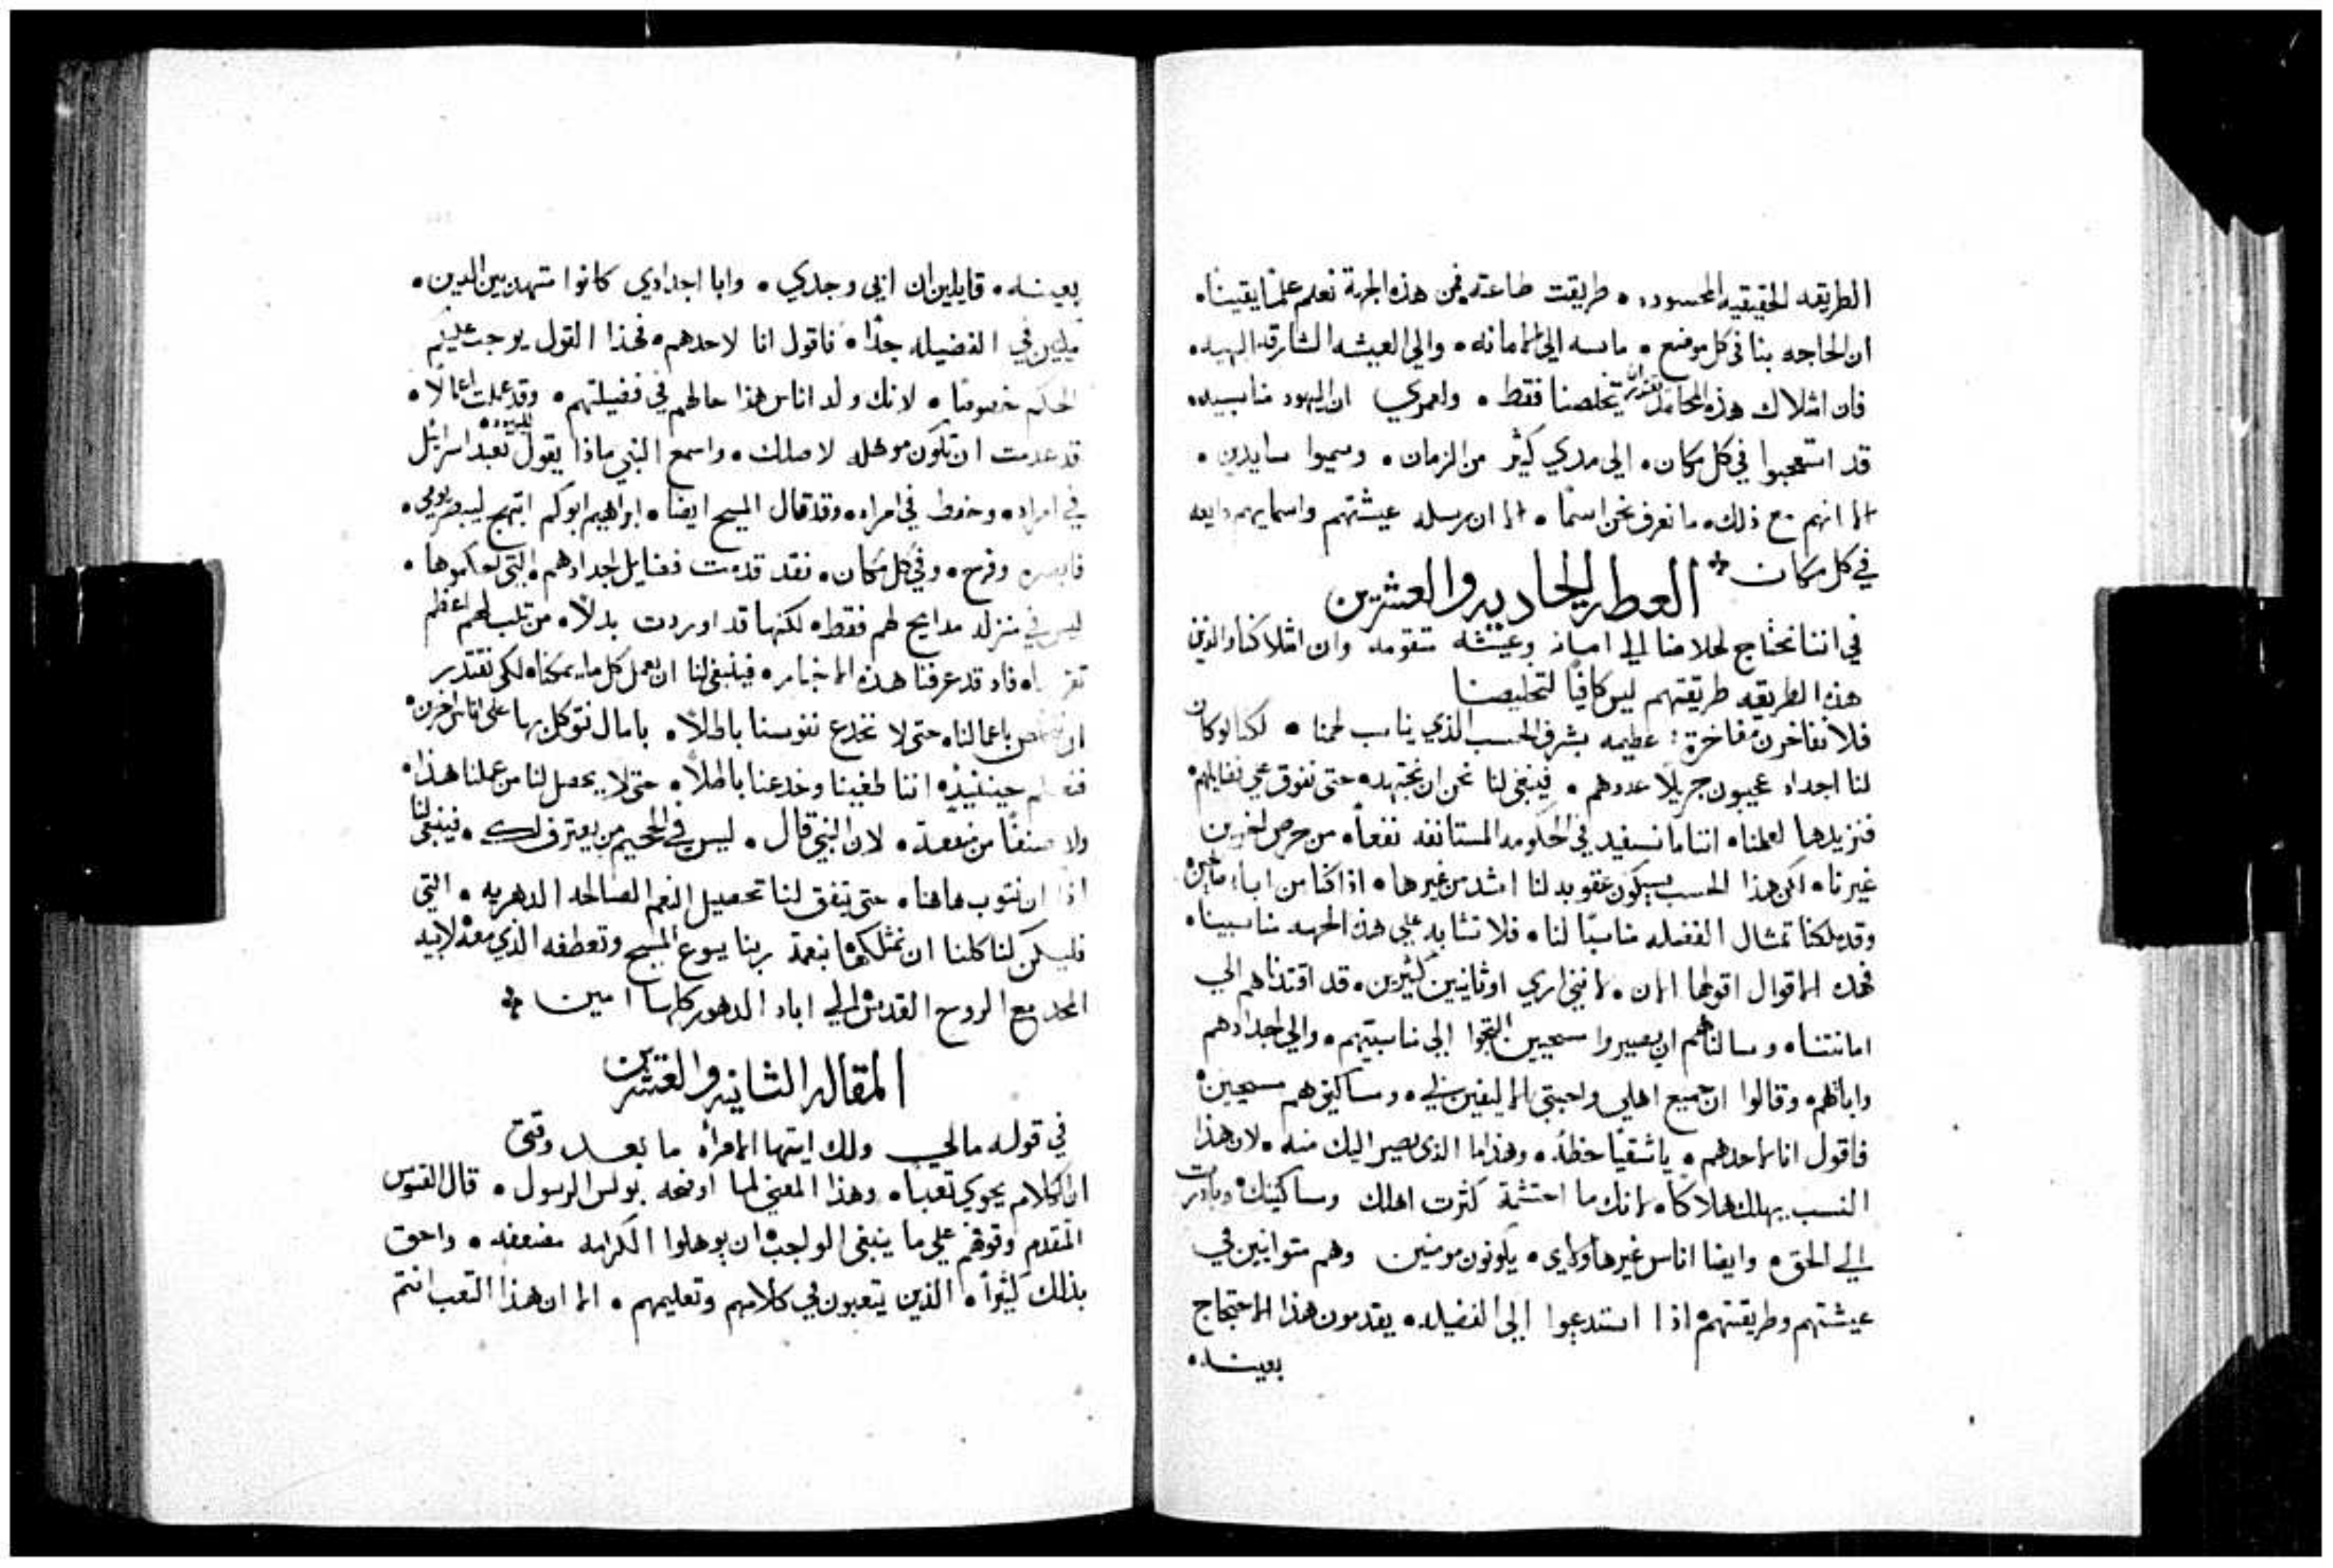 الطريقه الحقيقيه المحسوده • طريقت طاعته فمن هذه الجهة نعلم علمًا يقينًا •
ان الحاجه بنا فى كل موضع • ماسه الي الامانه • والي العيشه الشارقه البهيه •
فان امتلاك هذه المحامد تخلصنا فقط • ولعمري ان اليهود مناسبيه
قد استصحبوا في كل مكان • الى مدي كثير من الزمان • وسموا سايدين •
الا انهم مع ذلك • ما نعرف نحن اسمًا • الا ان مرسله عيشتهم واسمايهم دايعه
في كل مكان
العظه الحاديه والعشرين
في اننا نحتاج لخلاصنا الي امانه وعيشه متقومه وان امتلاكنا والدين
هذه الطريقه طريقتهم ليس كافيًا لتخليصنا
فلا نفاخرن مفاخرة عظيمه بشرف الحسب الذي يناسب لحمنا • لكنا لو كان
لنا اجداد عجيبون جزيلًا عددهم • فينبغي لنا نحن ان نجتهد • حتى نفوق علي فضايلهم
فنزيدها لعلمنا • اننا ما نستفيد في الحكومه المستانفه نفعاً • من حرص اخرين
غيرنا • لكن هذا الحسب سيكون عقوبه لنا اشد من غيرها • اذا كنا من اباء
وقد ملكنا تمثال الفضيله مناسبًا لنا • فلا نشابه علي هذه الجهه مناسبينا •
فهذه الاقوال اقولها الان • لانني اري اوثانيين كثيرين • قد اقتدناهم الي
امانتنا • وسالناهم ان يصيروا مسيحيين التجوا الى مناسبيهم • والي اجدادهم
واباهم • وقالوا ان جميع اهلي واحبتي الاليفين لي • ومساكنيهم مسيحيين
فاقول انا لاحدهم • يا شقيًا حظه • وهذا ما الذي يصير اليك منه • لان هذا
النسب يهلك هلاكاً • لانك ما احتشمة كثرت اهلك ومساكنيك • وبادرت
الي الحق • وايضا اناس غير هاولاي • يكونون مومنين وهم متوانيين في
عيشتهم وطريقتهم • اذا استدعيوا الي الفضيله • يقدمون هذا الاحتجاج
بعينه •
بعينه • قايلين ان ابي وجدي • وابا اجدادي كانوا متهدبين الدين •
في الفضيله جدًا • فاقول انا لاحدهم • فهذا القول يوجب عليكم
الحكم خصوصًا • لانك ولد اناس هذا حالهم في فضيلتهم • وقد عملت اعمالًا •
قد عدمت ان تكون موهله لاصلك • واسمع النبي ماذا يقول تعبد اسرائيل
في امراه • وحفظ في امراه • وقد قال المسيح ايضا • ابراهيم ابوكم ابتهج ليبصر يومي •
فابصره وفرح • وفي كل مكان • فقد قدمت فضايل اجدادهم التي
ليس في منزله مدايح لهم فقط • لكنها قد اوردت بدلًا • من ثلب لهم اعظم
فاد قد عرفنا هذه الاخبار • فينبغي لنا ان نعمل كل ما يمكنا • لكي نقتدر
ان نخلص باعمالنا • حتى لا نخدع نفوسنا باطلاً • بامال نتوكل بها على اناس اخرين •
فنعلم حينئيذ • اننا طغينا وخدعنا باطلاً • حتى لا يحصل لنا من عملنا هذا •
ولا صنفًا من منفعة • لان النبي قال • ليس في الجحيم من يعترف لك • فينبغي لنا
اذا ان نتوب هاهنا • حتى يتفق لنا تحصيل النعم الصالحه الدهريه • التي
فليكن لنا كلنا ان نمتلكها بنعمة ربنا يسوع المسيح وتعطفه الذي معه لابيه
المجد مع الروح القدس الي اباد الدهور كلها امين
المقاله الثانيه والعشرين
في قوله مالي ولك ايتها الامرأه ما بعد وقتي
ان الكلام يحوي تعبا • وهذا المعنى لما اوضحه بولس الرسول • قال القسوس
المقدم وقوفهم علي ما ينبغي الواجب ان يوهلوا الكرامه مضعفه • واحق
بذلك كثيراً • الذين يتعبون في كلامهم وتعليمهم • الا ان هذا التعب انتم